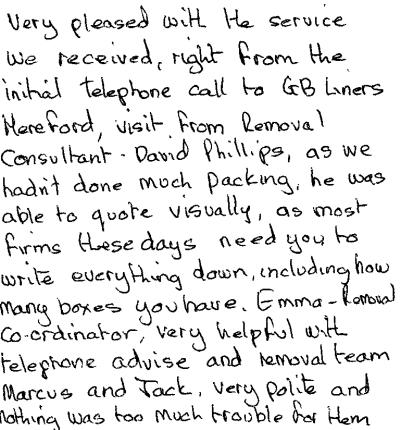 Very pleased with the service
we received, right from the
initial telephone call to GB Liners
Hereford, visit from Removal
Consultant - David Phillips, as we
hadn't done much packing, he was
able to quote visually, as most
firms these days need you to
write everything down, including how
many boxes you have. Emma - Removal
Co-ordinator, very helpful with
telephone advise and removal team
Marcus and Jack, very polite and
nothing was too much trouble for them